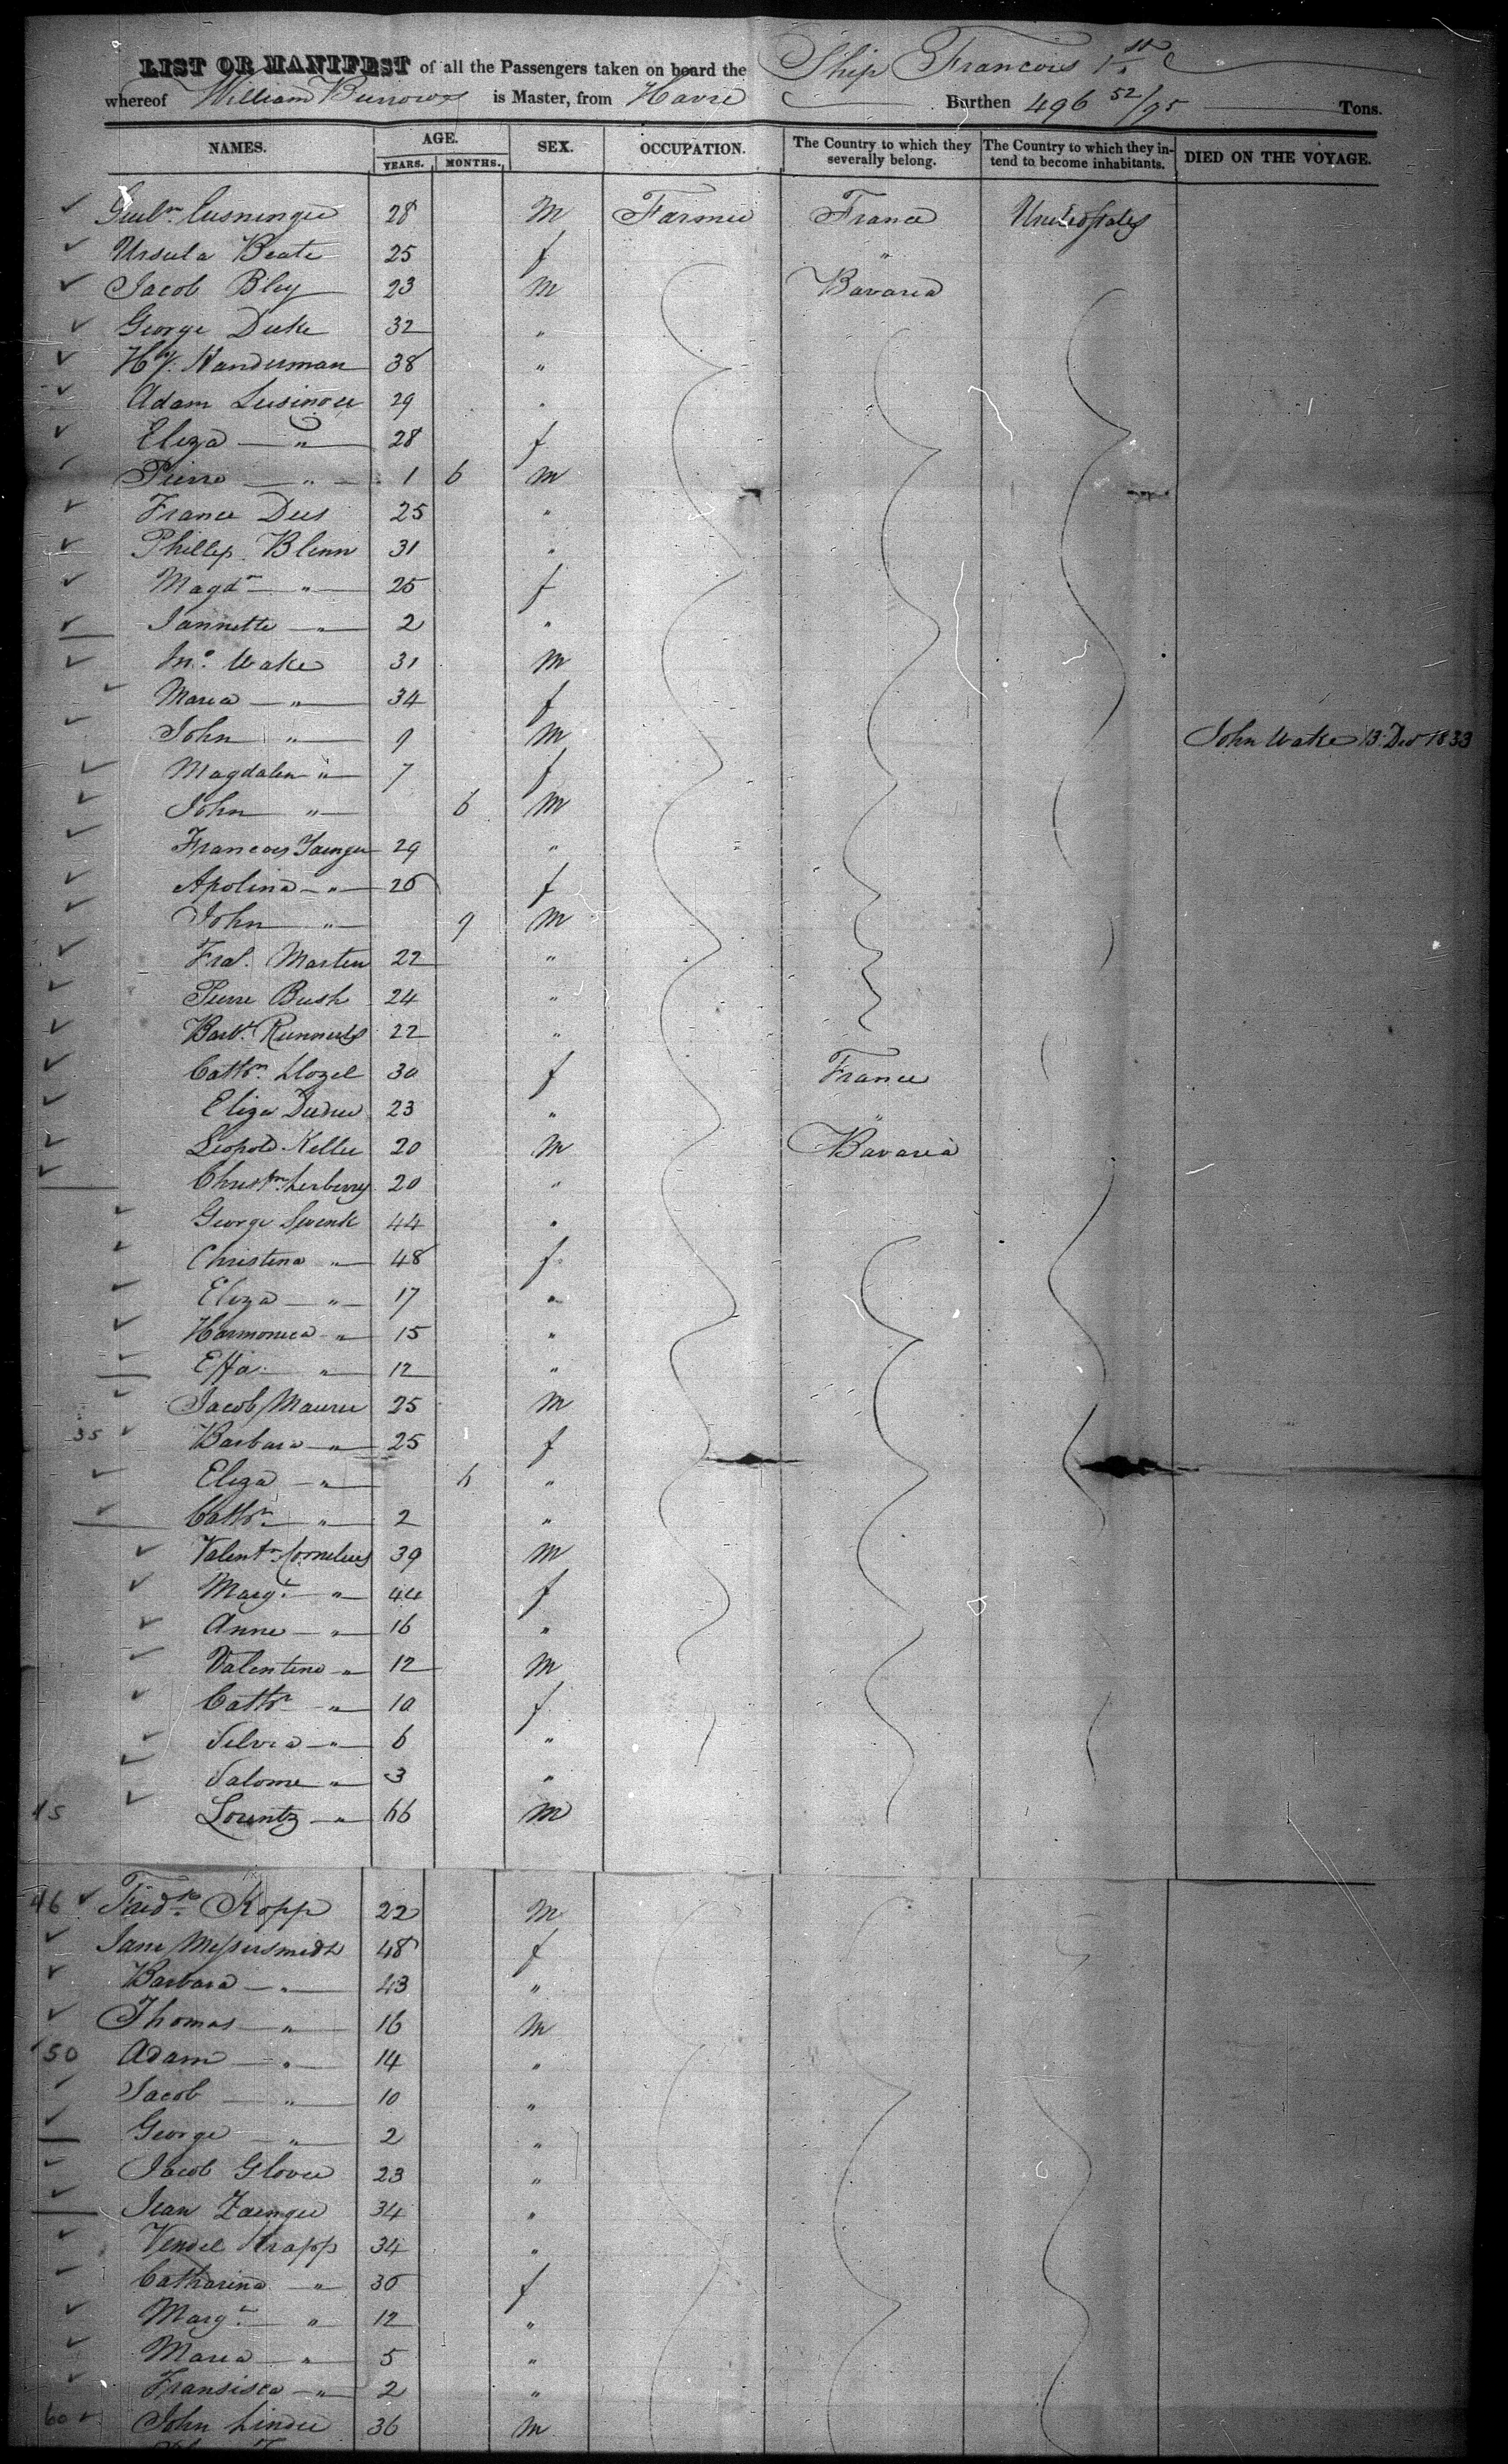 LIST OR MANIFEST of all the Passengers taken on board the Ship Francois 1st
whereof William Burrows is Master, from Havre Burthen 496 52/95 Tons.
NAMES. AGE. YEARS. MONTHS. SEX. OCCUPATION. The Country to which they severally belong. The Country to which they intend to become inhabitants. DIED ON THE VOYAGE.
28 M Farmer France United States
Ursula Beate 25 f "
Jacob Bley 23 M Bavaria
George Duke 32 "
Hy. Handerman 38 "
Adam 29 "
Eliza " 28 f
Pierre " 1 6 M
France Dees 25 "
Phillip Blenn 31 "
Magdn " 25 f
Jannette " 2 "
Jno. Wake 31 M
Maria " 34 f
John " 9 M John Wake 13 Decr 1833
Magdalen " 7 f
John " 6 M
Francois 29 "
Apolina " 26 f
John " 9 M
Fras. Marten 22 "
Pierre Bush 24 "
22 "
Cathn. 30 f France
Eliza 23 " "
Leopold Keller 20 M Bavaria
Christn. 20 "
George Swenk 44 "
Christina " 48 f
Eliza " 17 "
Harmonica " 15 "
Effa " 12 "
Jacob Maurer 25 M
35 Barbara " 25 f
Eliza " 6 "
Cathn " 2 "
Valentn. Cornelius 39 M
Margt. " 44 f
Anne " 16 "
Valentine " 12 M
Cathn " 10 f
Silvia " 6 "
Salome " 3 "
45 Lorentz " 66 M
46 Kopp 22 M
Jane Messersmidt 48 f
Barbara " 43 "
Thomas " 16 M
50 Adam " 14 "
Jacob " 10 "
George " 2 "
Jacob Glover 23 "
Jean Zaenger 34 "
Vendel Krapp 34 "
Catharina " 36 f
Margt. " 12 "
Maria " 5 "
Fransisca " 2 "
60 John Linder 36 M